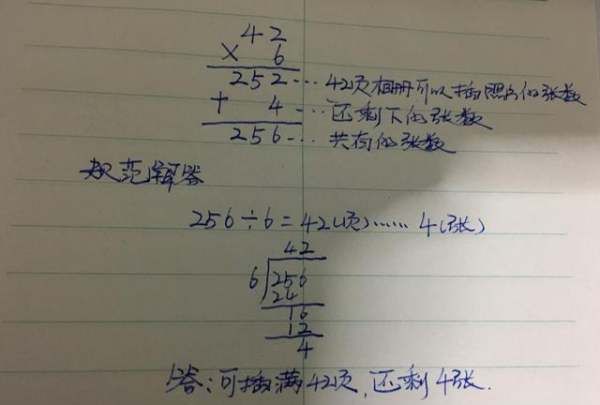 42
× 6
252…42页相册可以插照片的张数
+ 4…还剩下的张数
256…共有的张数
规范解答
256÷6=42(页)……4(张)
42
6 256
24
16
12
4
答:可插满42页,还剩4张.